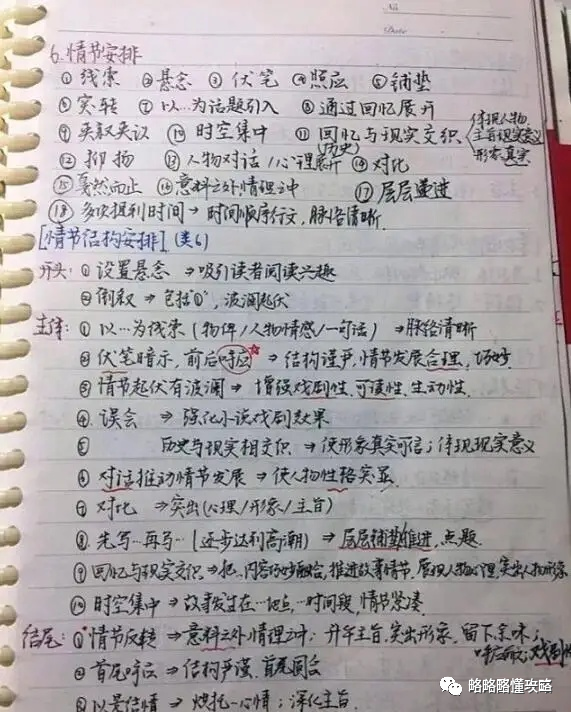 No
Date
6.情节安排
①线索 ②悬念 ③伏笔 ④照应 ⑤铺垫
⑥突转 ⑦以…为话题引入 ⑧通过回忆展开
⑨夹叙夹议 ⑩时空集中 ⑪回忆与现实交织
(历史)
体现人物
主旨现实意义
形象真实
⑫抑扬 ⑬人物对话/心理展开 ⑭对比
⑮戛然而止 ⑯意料之外情理之中 ⑰层层递进
⑱多次提到时间→时间顺序行文,脉络清晰.
[情节结构安排](类6)
开头:①设置悬念→吸引读者阅读兴趣
②倒叙→包括"①",波澜起伏
主体:①以…为线索(物件/人物情感/一句话)→脉络清晰
②伏笔暗示,前后呼应☆→结构严谨,情节发展合理,巧妙
③情节起伏有波澜→增强戏剧性,可读性,生动性.
④误会→强化小说戏剧效果
⑤ 历史与现实相交织→使形象真实可信;体现现实意义
⑥对话推动情节发展→使人物性格突显
⑦对比→突出(心理/形象/主旨)
⑧先写…再写…(逐步达到高潮)→层层铺垫推进,点题.
⑨回忆与现实交织→把..内容巧妙融合,推进故事情节,展现人物心理,突出人物形象
⑩时空集中→故事发生在…地点,…时间段,情节紧凑.
结尾:①情节反转→意料之外情理之中;升华主旨,突出形象,留下余味;
②首尾呼应→结构严谨,首尾圆合
③以景结情→烘托…心情;深化主旨.
略略略懂攻略